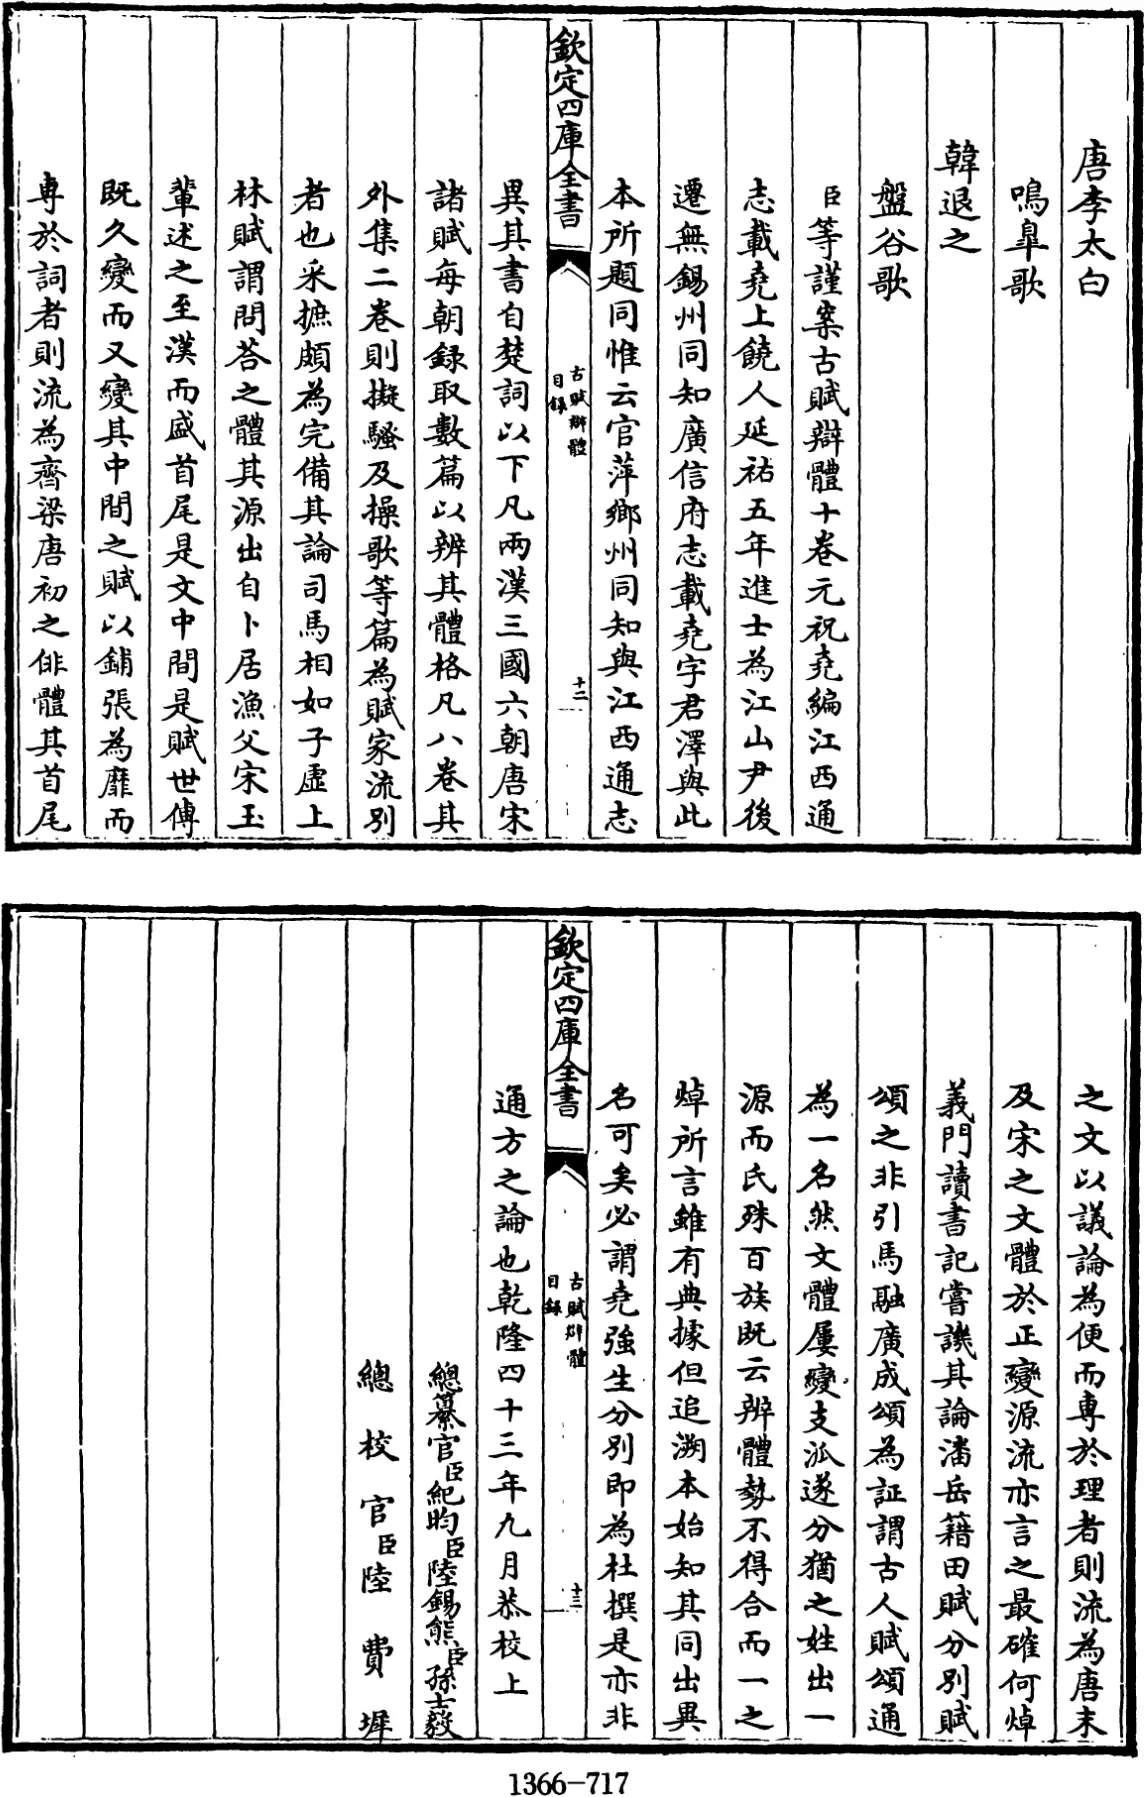 唐李太白
鳴臯歌
韓退之
盤谷歌
臣等謹案古賦辯體十卷元祝堯編江西通
志載堯上饒人延祐五年進士為江山尹後
遷無錫州同知廣信府志載堯字君澤與此
本所題同惟云官萍鄉州同知與江西通志
欽定四庫全書
古賦辯體
目錄
十二
異其書自楚詞以下凡兩漢三國六朝唐宋
諸賦每朝録取數篇以辨其體格凡八卷其
外集二卷則擬騷及操歌等篇為賦家流别
者也采摭頗為完備其論司馬相如子虛上
林賦謂問荅之體其源出自卜居漁父宋玉
輩述之至漢而盛首尾是文中間是賦世傳
既久變而又變其中間之賦以鋪張為靡而
専於詞者則流為齊梁唐初之俳體其首尾
之文以議論為便而専於理者則流為唐末
及宋之文體於正變源流亦言之最確何焯
義門讀書記嘗譏其論潘岳籍田賦分别賦
頌之非引馬融廣成頌為証謂古人賦頌通
為一名然文體屢變支泒遂分猶之姓出一
源而氏殊百族既云辨體勢不得合而一之
焯所言雖有典據但追溯本始知其同出異
名可矣必謂堯強生分别即為杜撰是亦非
欽定四庫全書
古賦辯體
目錄
十三
通方之論也乾隆四十三年九月恭校上
總纂官臣紀昀臣陸錫熊臣孫士毅
總校官臣陸費墀
1366-717